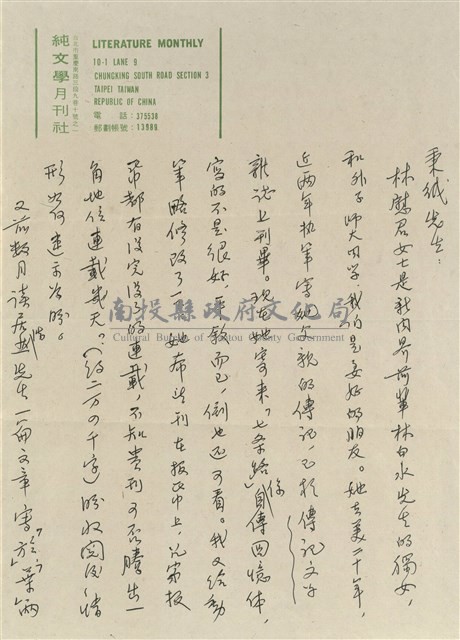 純文學月刊社
台北市重慶南路三段九巷十號之一
LITERATURE MONTHLY
10-1 LANE 9
CHUNGKING SOUTH ROAD SECTION 3
TAIPEI TAIWAN
REPUBLIC OF CHINA
電話:375538
郵劃帳號:13989
南投縣政府文化局
Cultural Bureau of Nantou County Government
先生:
林慰君女士是我內界前輩林白水先生的獨女,
和外子師大同學,我們是要好的朋友。她去美二十年,
近兩年執筆寫她父親的傳記,已於傳記文學
雜誌上刊畢。現在她寄來「七條路」係自傳回憶体,
寫的不是很好,平敘而已,倒也还可看。我又給動
筆略修改了,她希望刊在報上,
都有沒完沒了的連載,不知貴刊可否騰出一
角地位連載幾天?(約二万〇千字)盼收閱後惜
形如何逮示為盼。
又前數月談居先生一篇文章害